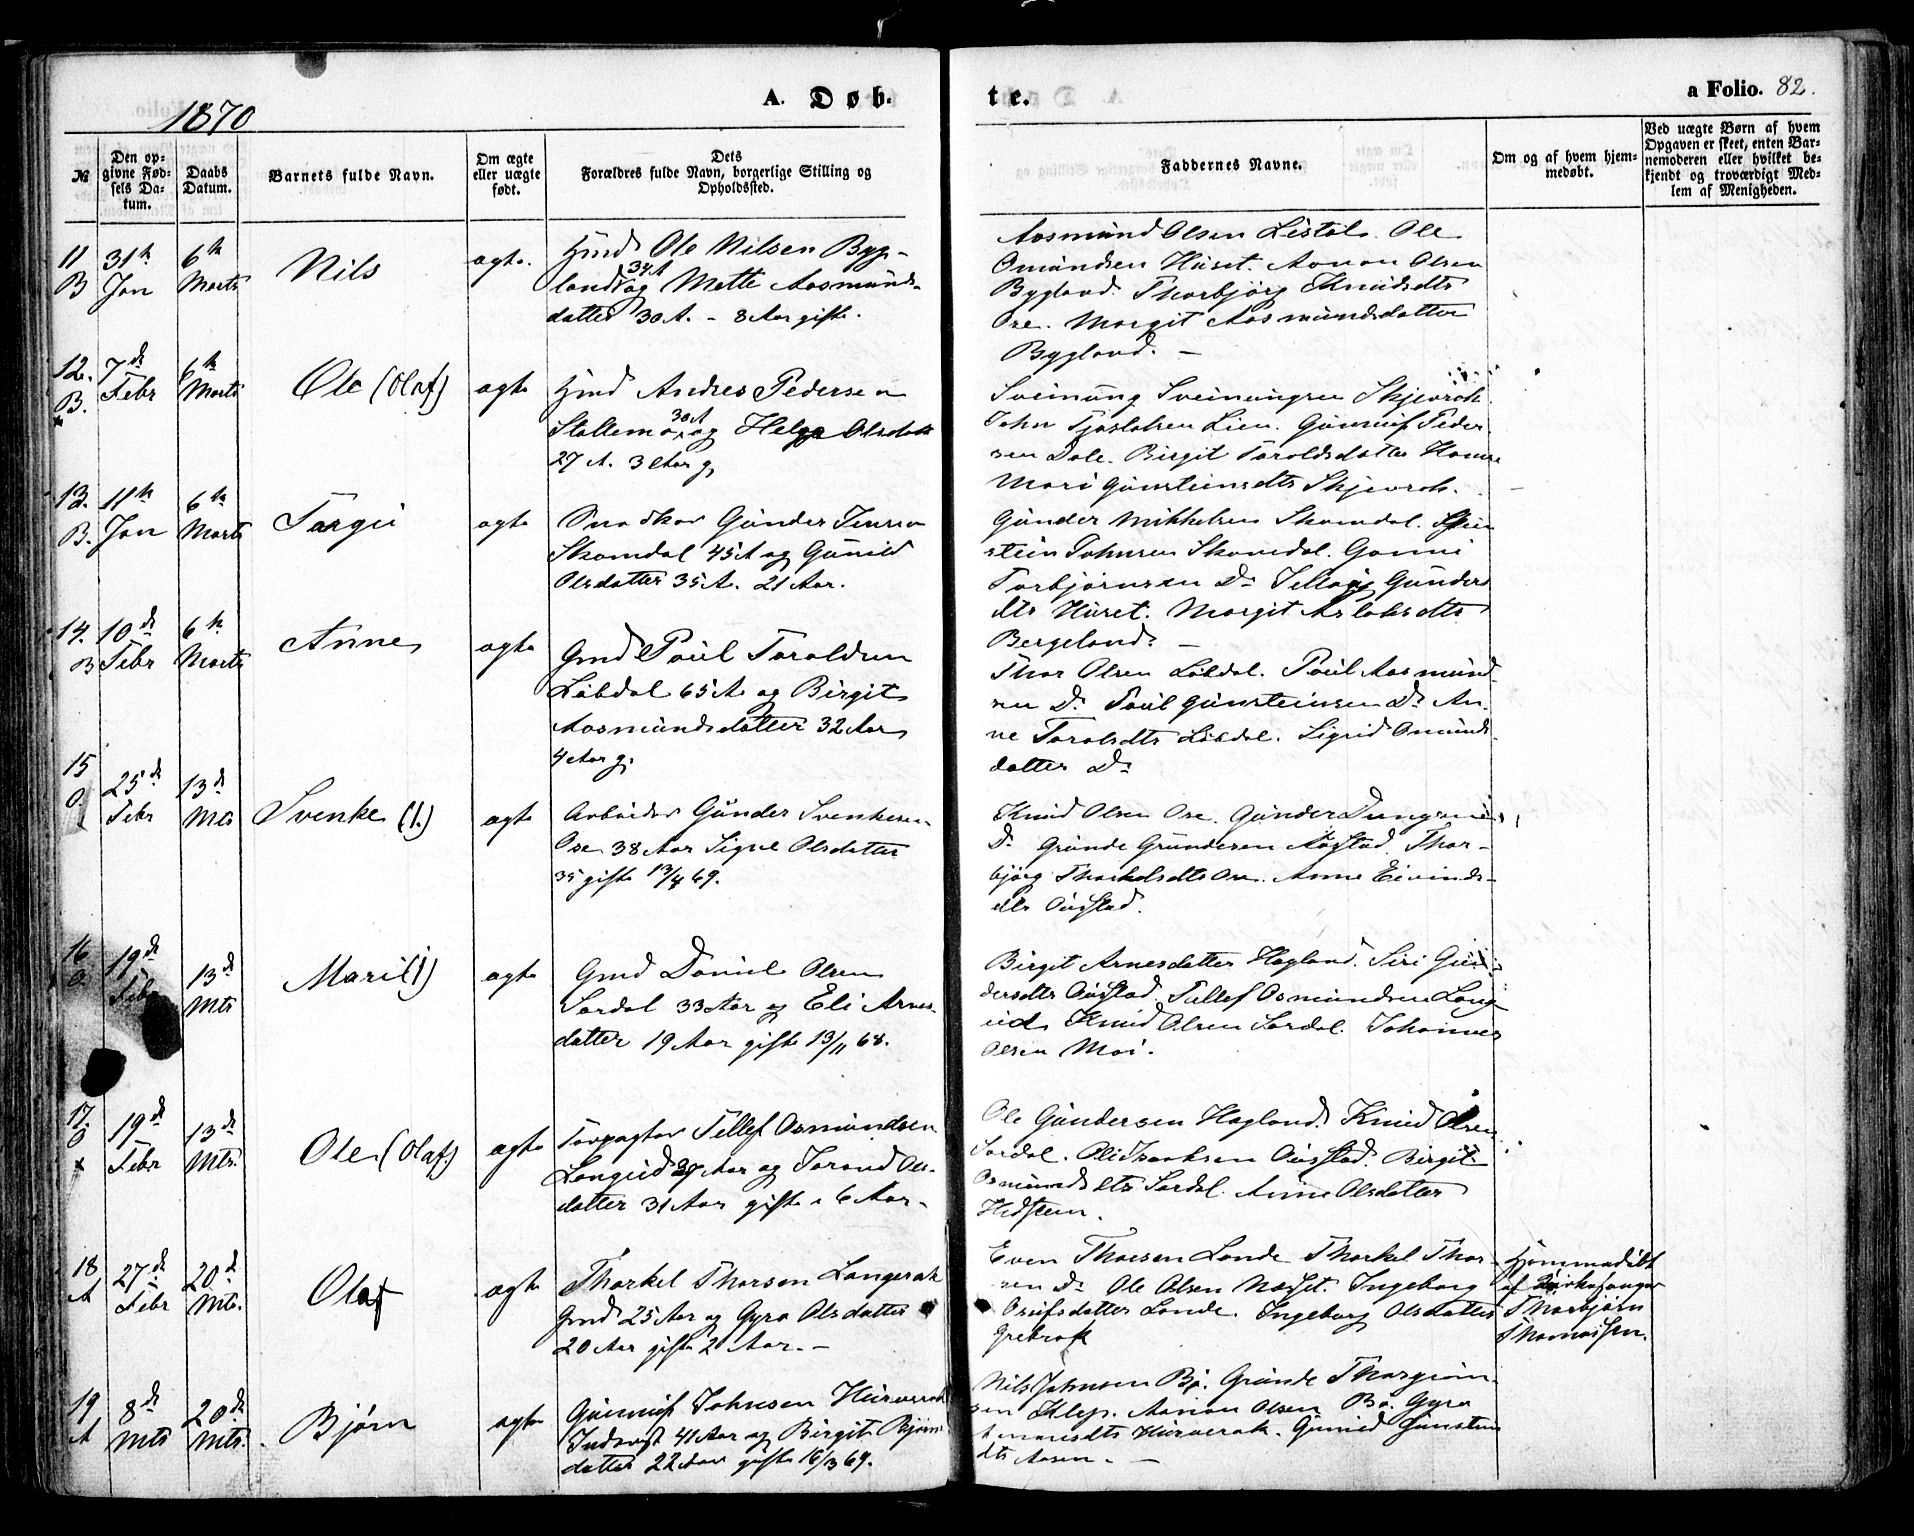 1870
A. Døb-
te.
a Folio. 82.
№
Den op-
givne Fød-
sels Da-
tum.
Daabs
Datum.
Barnets fulde Navn.
Om ægte
eller uægte
født.
Dets
Forældres fulde Navn, borgerlige Stilling og
Opholdssted.
Faddernes Navne.
Om og af hvem hjem-
medøbt.
Ved uægte Børn af hvem
Opgaven er skeet, enten Bar-
nemoderen eller hvilket be-
kjendt og troværdigt Med-
lem af Menigheden.
11 B
31te Jan
6te Marts
Nils
ægte.
Gmd Ole Nilsen Byg-
land 34 A og Mette Aasmunds-
datter 30 A. - 8 Aar gifte.
Aasmund Olsen Listøl. Ole
Omundsen Huset. Aanon Olsen
Bygland. Thorbjørg Knudsdtr
Ose. Margit Aasmundsdatter
Bygland. -
12. B.
7de Febr
6te Marts
Ole (Olaf)
ægte
Gmd Andres Pedersen
30 A og Helge Olsdatt
27 A. 3 Aar g.
Sveinung Sveinungsen
John Lien. Gunnuf Peder-
sen Dale. Birgit Taroldsdatter
Mari Gunsteinsdtr
13. B.
11te Jan
6te Marts
Targei
ægte
Gunder Jensen
Skomdal 45 A og Gunild
Olsdatter 35 A. 21 Aar.
Gunder Mikkelsen Skomdal.
stein Johnsen Skomdal. Gunni
Torbjørnsen Do Gunders
dtr Huset. Margit Aslaksdtr
Bergeland. -
14. B
10de Febr
6te Marts
Anne
ægte
Gmd Poul Taroldsen
Løbdal 65 A og Birgit
Aasmundsdatter 32 Aar
4 Aar g.
Thor Olsen Løbdal. Poul Aasmund-
sen Do Poul Gunsteinsen Do An-
ne Taroldsdtr Løbdal. Sigrid Omunds-
datter Do
15 O.
25de Febr
13de Mts
Svenke (1.)
ægte
Arbeider Gunder Svenkesen
Ose 38 Aar Signe Olsdatter
35 gifte 13/4 69.
Knud Olsen Ose. Gunder
Do Gunde Gundersen Austad. Thor-
bjørg Thorkelsdtr Ose. Anne Eivinds-
dtr Austad.
16 O.
19de Febr
13de Mts
Mari (1)
ægte
Gmd Daniel Olsen
Sordal 33 Aar og Eli Arnes-
datter 19 Aar gifte 13/11 68.
Birgit Arnesdatter Hagland. Siri Gun-
dersdtr Austad. Tellef Osmundsen Lang-
eid. Knud Olsen Sordal. Johannes
Olsen Moi.
17. O
19de Febr
13de Mts.
Ole (Olaf.)
ægte
Tellef Osmundsen
Langeid 29 Aar og Torand Ols-
datter 31 Aar gifte 6 Aar.
Ole Gundersen Hagland. Knud Olsen
Sordal. Austad. Birgit
Osmundsdtr Sordal. Anne Olsdatter
18 A
27de Febr
20de Mts.
Olaf
ægte
Thorkel Thorsen Langerak
Gmd 25 Aar og Gyro Olsdatter
20 Aar gifte 2 Aar. -
Even Thorsen Lande Thorkel Thor-
sen Do Ole Olsen Næset. Ingeborg
Osufsdatter Lande. Ingeborg Olsdatter
Grebrok
Hjemmedøbt
af Kirkesanger
Thorbjørn
Thomassen.
19 A
8de Mts
20de Mts.
Bjørn
ægte
Gunnuf Johnsen Hurverak
41 Aar og Birgit Bjørns
datter 22 Aar gifte 69.
Nils Johnsen Bø. Gunde
sen Klep. Aanon Olsen Bø. Gyro
Hurverak. Gunild Gunsteins
dtr Aasen. -